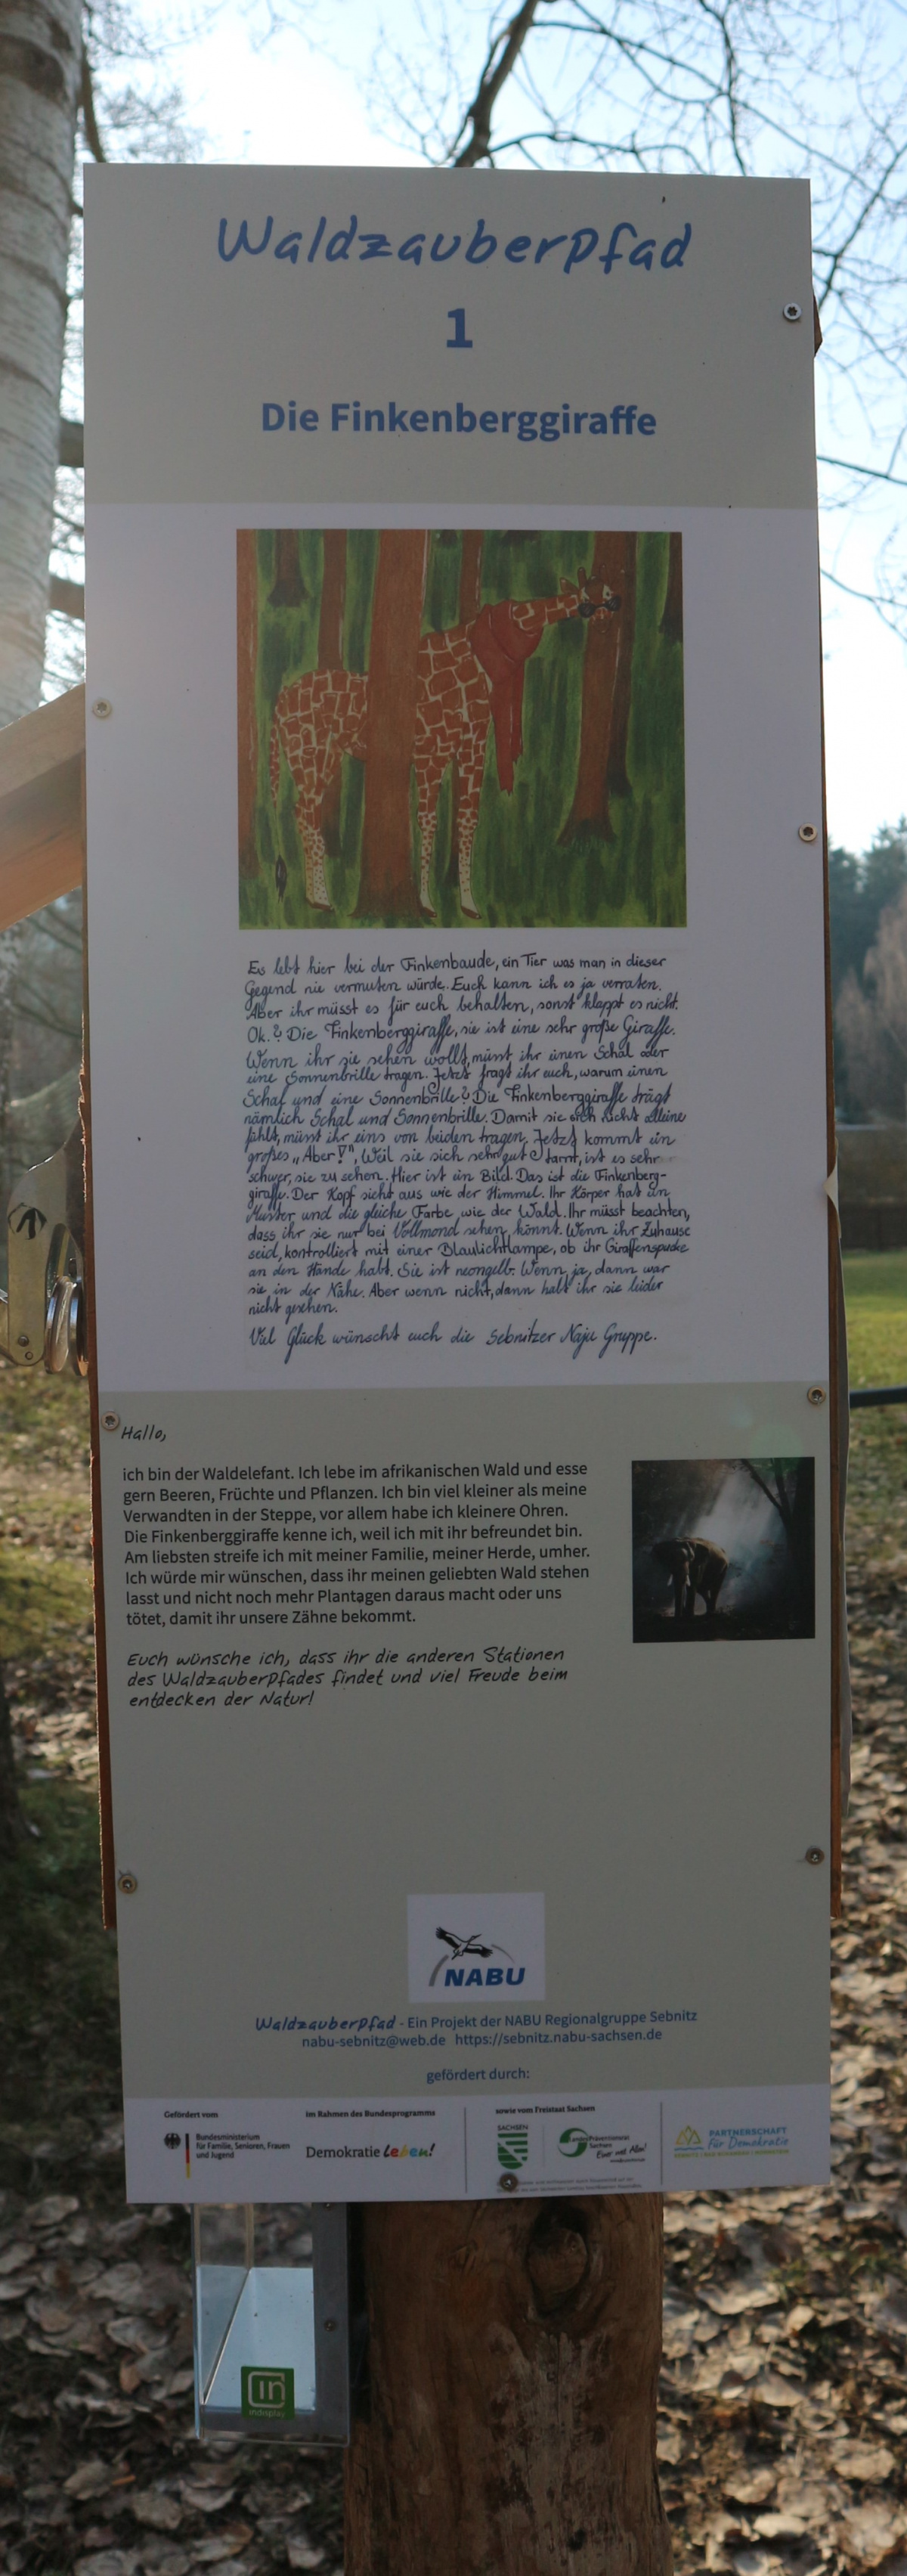 Waldzauberpfad
1
Die Finkenberggiraffe
Es lebt hier bei der Finkenbaude, ein Tier was man in dieser
Gegend nie vermuten würde. Euch kann ich es ja verraten.
Aber ihr müsst es für euch behalten, sonst klappt es nicht.
Ok.? Die Finkenberggiraffe, sie ist eine sehr große Giraffe.
Wenn ihr sie sehen wollt, müsst ihr einen Schal oder
eine Sonnenbrille tragen. Jetzt fragt ihr euch, warum einen
Schal und eine Sonnenbrille? Die Finkenberggiraffe trägt
nämlich Schal und Sonnenbrille. Damit sie sich nicht alleine
fühlt, müsst ihr eins von beiden tragen. Jetzt kommt ein
großes „Aber!", Weil sie sich sehr gut tarnt, ist es sehr
schwer, sie zu sehen. Hier ist ein Bild. Das ist die Finkenberg-
giraffe. Der Kopf sieht aus wie der Himmel. Ihr Körper hat ein
Muster und die gleiche Farbe wie der Wald. Ihr müsst beachten,
dass ihr sie nur bei Vollmond sehen könnt. Wenn ihr Zuhause
seid, kontrolliert mit einer Blaulichtlampe, ob ihr Giraffenspucke
an den Hände habt. Sie ist neongelb. Wenn ja, dann war
sie in der Nähe. Aber wenn nicht, dann habt ihr sie leider
nicht gesehen.
Viel Glück wünscht euch die Sebnitzer Naju Gruppe.
Hallo,
ich bin der Waldelefant. Ich lebe im afrikanischen Wald und esse
gern Beeren, Früchte und Pflanzen. Ich bin viel kleiner als meine
Verwandten in der Steppe, vor allem habe ich kleinere Ohren.
Die Finkenberggiraffe kenne ich, weil ich mit ihr befreundet bin.
Am liebsten streife ich mit meiner Familie, meiner Herde, umher.
Ich würde mir wünschen, dass ihr meinen geliebten Wald stehen
lasst und nicht noch mehr Plantagen daraus macht oder uns
tötet, damit ihr unsere Zähne bekommt.
Euch wünsche ich, dass ihr die anderen Stationen
des Waldzauberpfades findet und viel Freude beim
entdecken der Natur!
NABU
Waldzauberpfad - Ein Projekt der NABU Regionalgruppe Sebnitz
nabu-sebnitz@web.de https://sebnitz.nabu-sachsen.de
gefördert durch:
Gefördert vom
Bundesministerium
für Familie, Senioren, Frauen
und Jugend
im Rahmen des Bundesprogramms
Demokratie leben!
sowie vom Freistaat Sachsen
SACHSEN
Landespräventionsrat
Sachsen
Einer mit Allen!
PARTNERSCHAFT
für Demokratie
in
indisplay